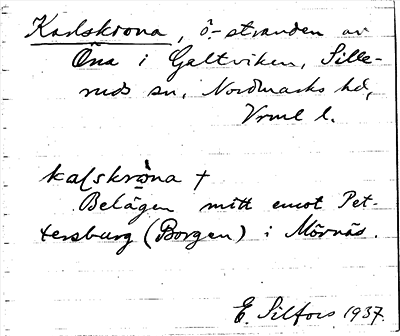 Karlskrona, ö-stranden av
Öna i Galtviken, Sille-
ruds sn, Nordmarks hd,
Vrml l.
kaſskrona +
Belägen mitt emot Pet-
tersburg (Borgen) i Mörnäs.
E Silfors 1937.